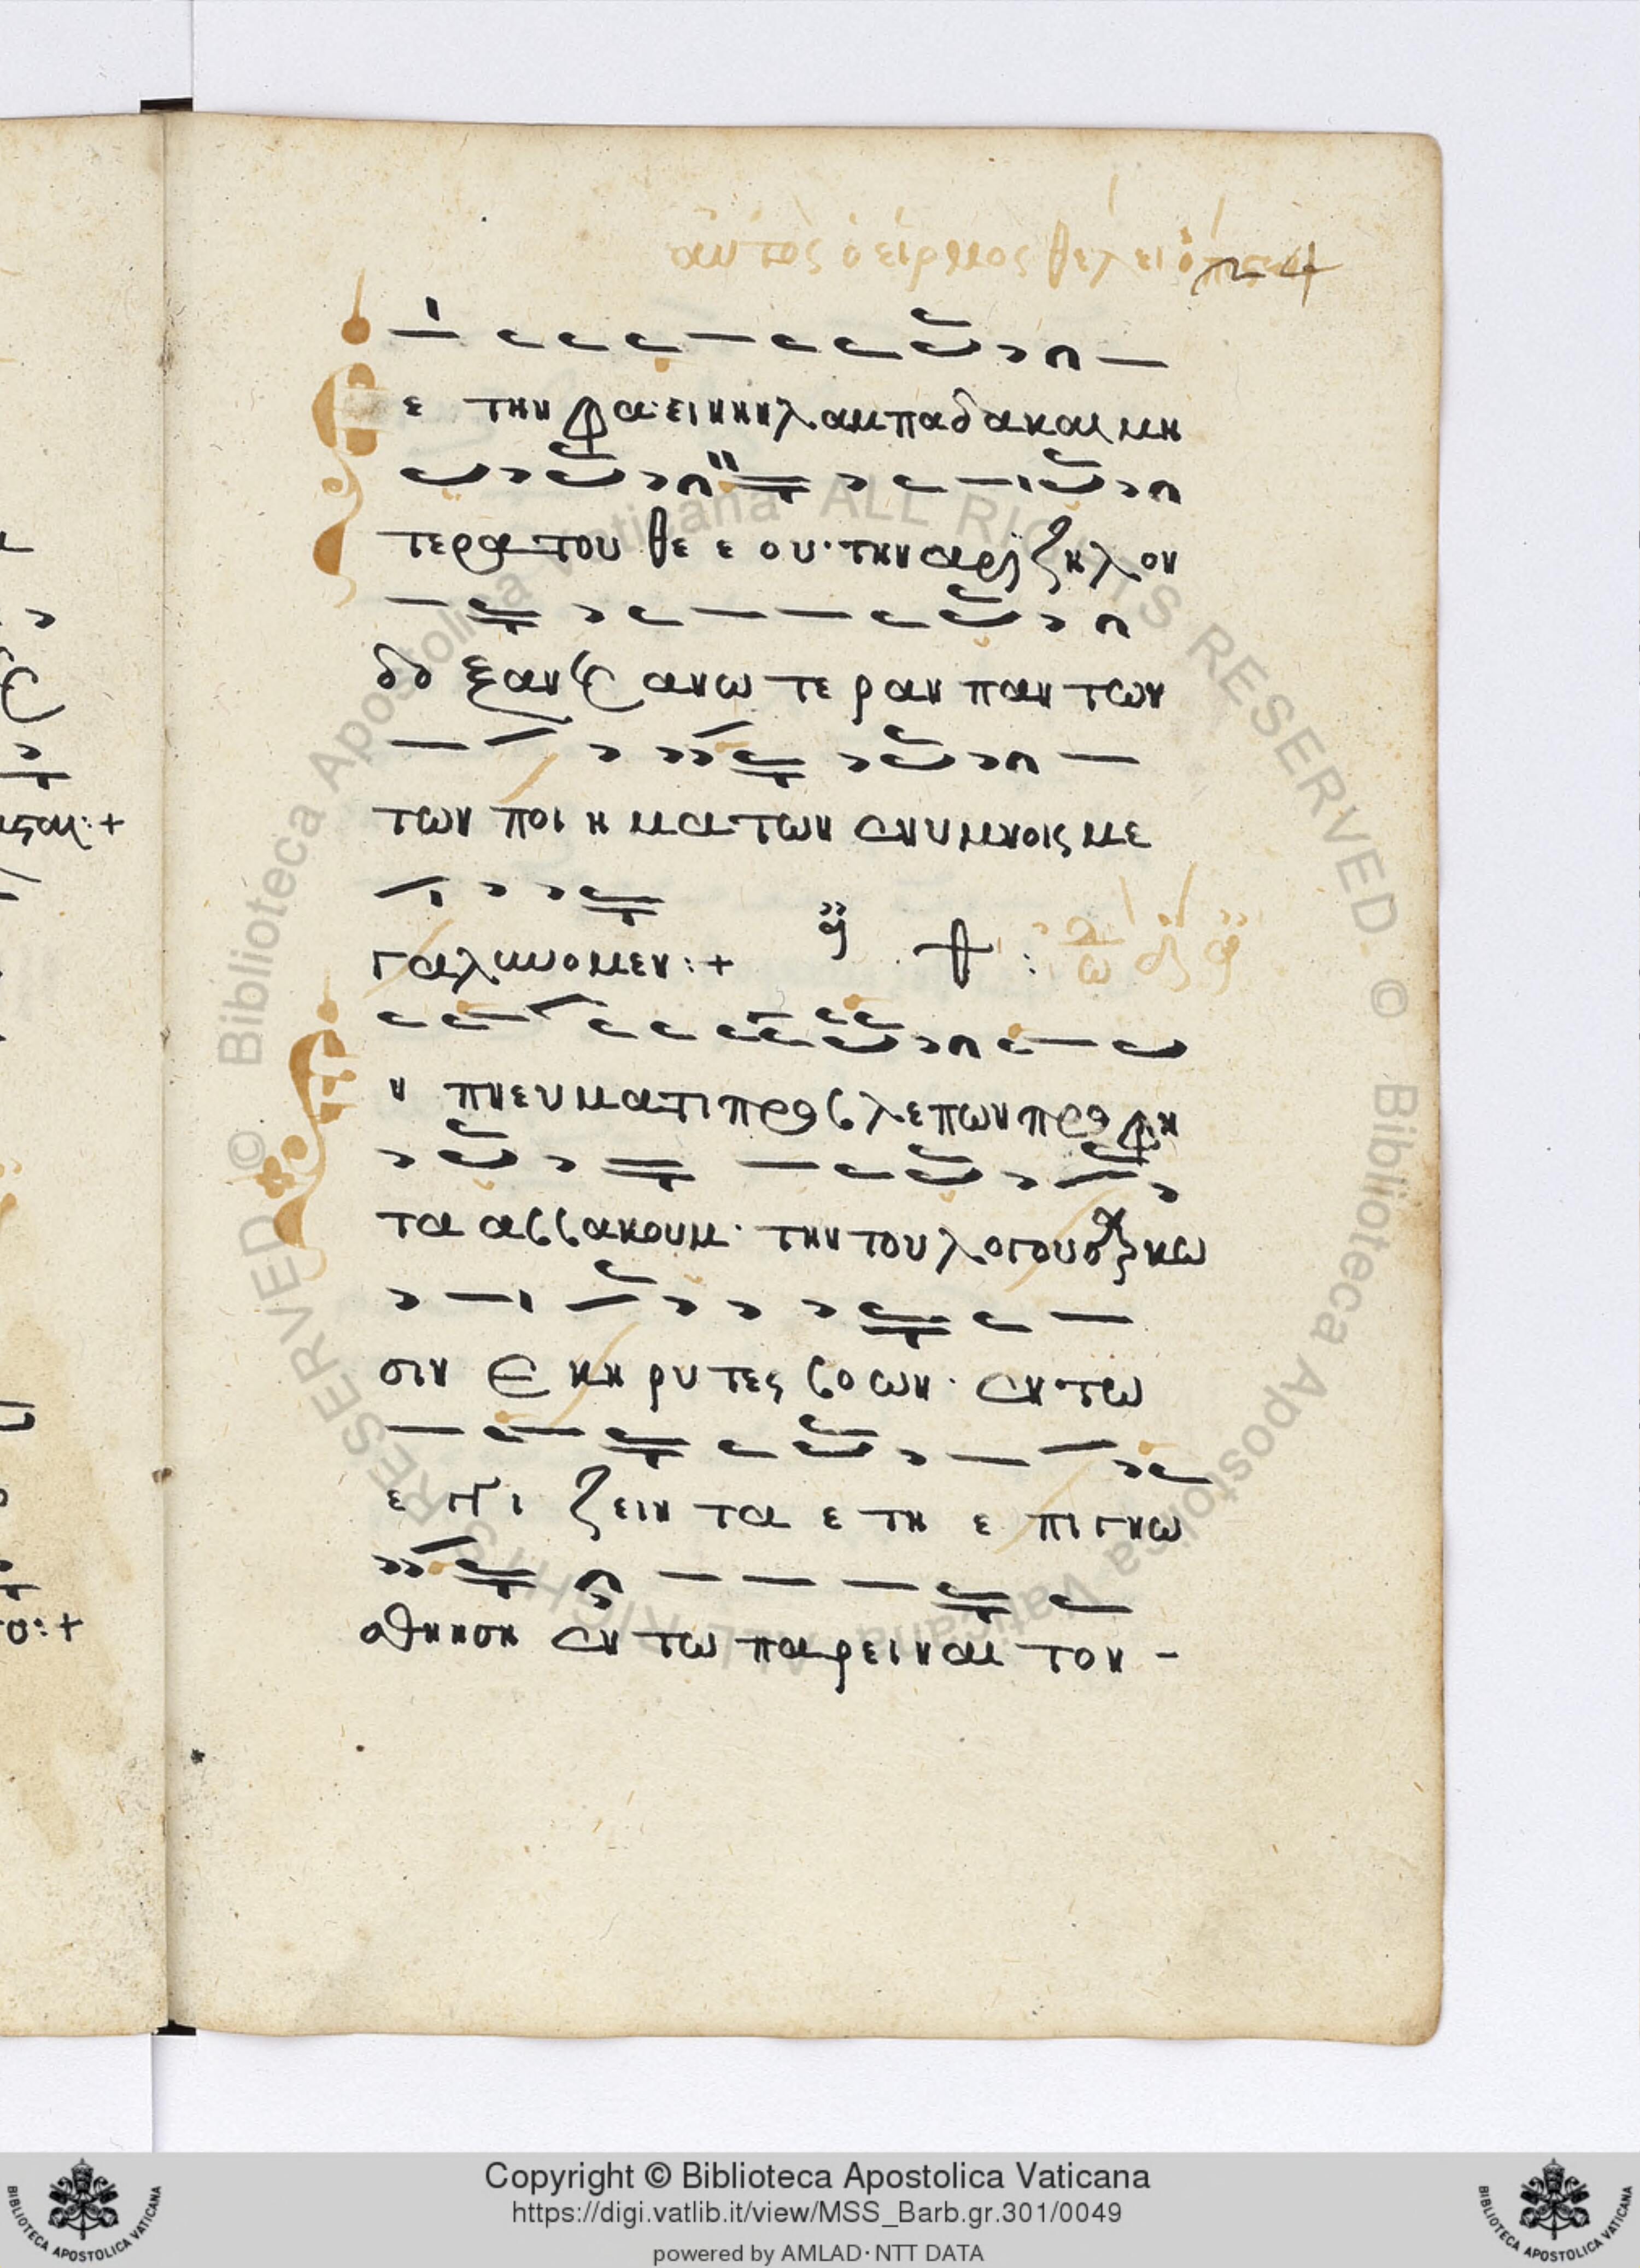 αυτος ο ειρμος θελει
24
Σε την φαεινην λαμπαδα και μη
τερα του θε ε ου· την αριζηλον
δο ξαν κ ανω τε ραν παν των
των ποι η μα των εν υμνοις με
γαλυνομεν:+
Εν πνευματι προβλεπων προφη
τα αββακουμ· την του λογου σαρκω
σιν εκηρυτες βοων· εν τω
ε γγι ζειν τα ε τη ε πιγνω
σθηση εν τω παρειναι τον -
Biblioteca Apostolica Vaticana ALL RIGHTS RESERVED ©
Biblioteca Apostolica Vaticana ALL RIGHTS RESERVED ©
Copyright © Biblioteca Apostolica Vaticana
https://digi.vatlib.it/view/MSS_Barb.gr.301/0049
powered by AMLAD·NTT DATA
BIBLIOTECA APOSTOLICA VATICANA
BIBLIOTECA APOSTOLICA VATICANA